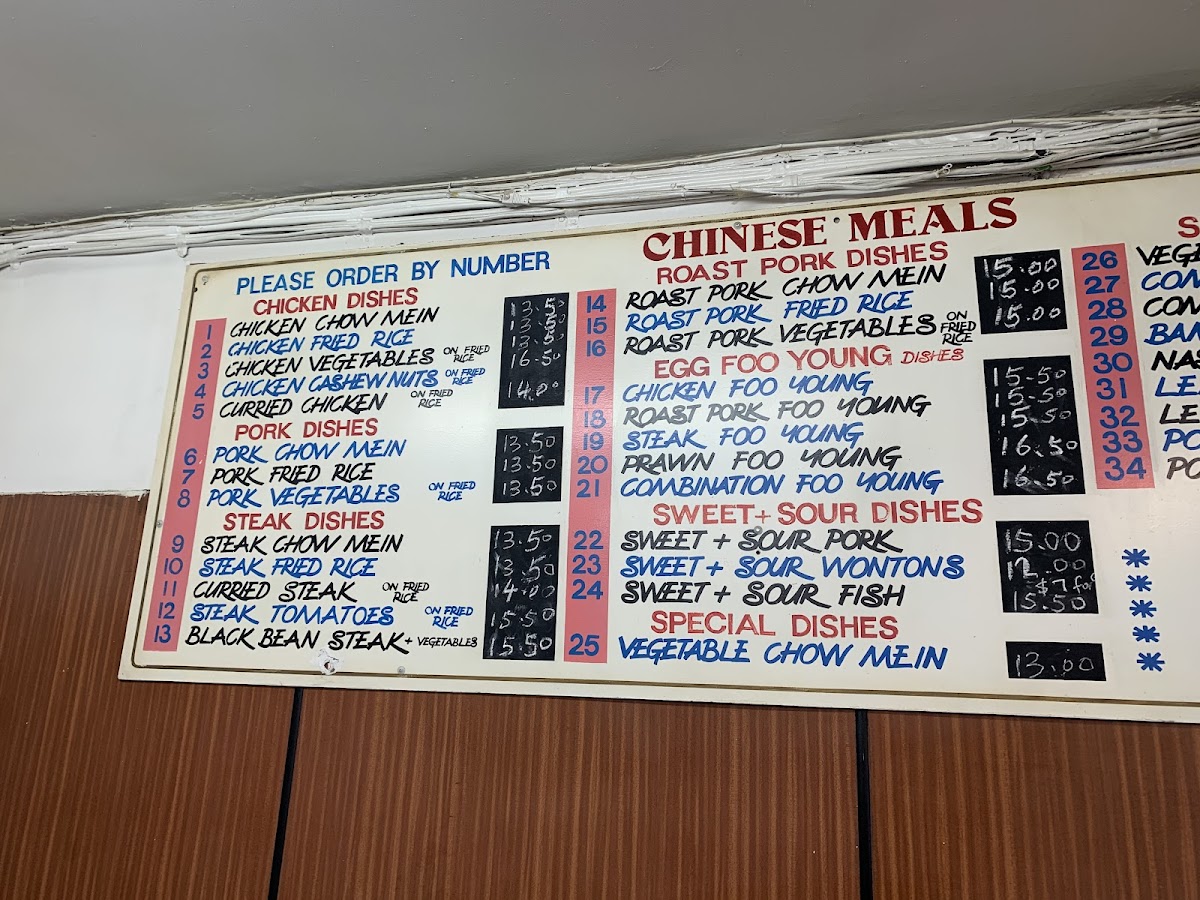 CHINESE MEALS
PLEASE ORDER BY NUMBER
CHICKEN DISHES
1 CHICKEN CHOW MEIN 13.50
2 CHICKEN FRIED RICE 13.50
3 CHICKEN VEGETABLES ON FRIED RICE 13.50
4 CHICKEN CASHEW NUTS ON FRIED RICE 16.50
5 CURRIED CHICKEN ON FRIED RICE 14.00
PORK DISHES
6 PORK CHOW MEIN 13.50
7 PORK FRIED RICE 13.50
8 PORK VEGETABLES ON FRIED RICE 13.50
STEAK DISHES
9 STEAK CHOW MEIN 13.50
10 STEAK FRIED RICE 13.50
11 CURRIED STEAK ON FRIED RICE 14.00
12 STEAK TOMATOES ON FRIED RICE 15.50
13 BLACK BEAN STEAK + VEGETABLES 15.50
ROAST PORK DISHES
14 ROAST PORK CHOW MEIN 15.00
15 ROAST PORK FRIED RICE 15.00
16 ROAST PORK VEGETABLES ON FRIED RICE 15.00
EGG FOO YOUNG DISHES
17 CHICKEN FOO YOUNG 15.50
18 ROAST PORK FOO YOUNG 15.50
19 STEAK FOO YOUNG 15.50
20 PRAWN FOO YOUNG 16.50
21 COMBINATION FOO YOUNG 16.50
SWEET + SOUR DISHES
22 SWEET + SOUR PORK 15.00
23 SWEET + SOUR WONTONS 12.00
24 SWEET + SOUR FISH 15.50
SPECIAL DISHES
25 VEGETABLE CHOW MEIN 13.00
S
26 VEGE
27 COM
28 COM
29 BAN
30 NAS
31 LE
32 LE
33 PO
34 PO